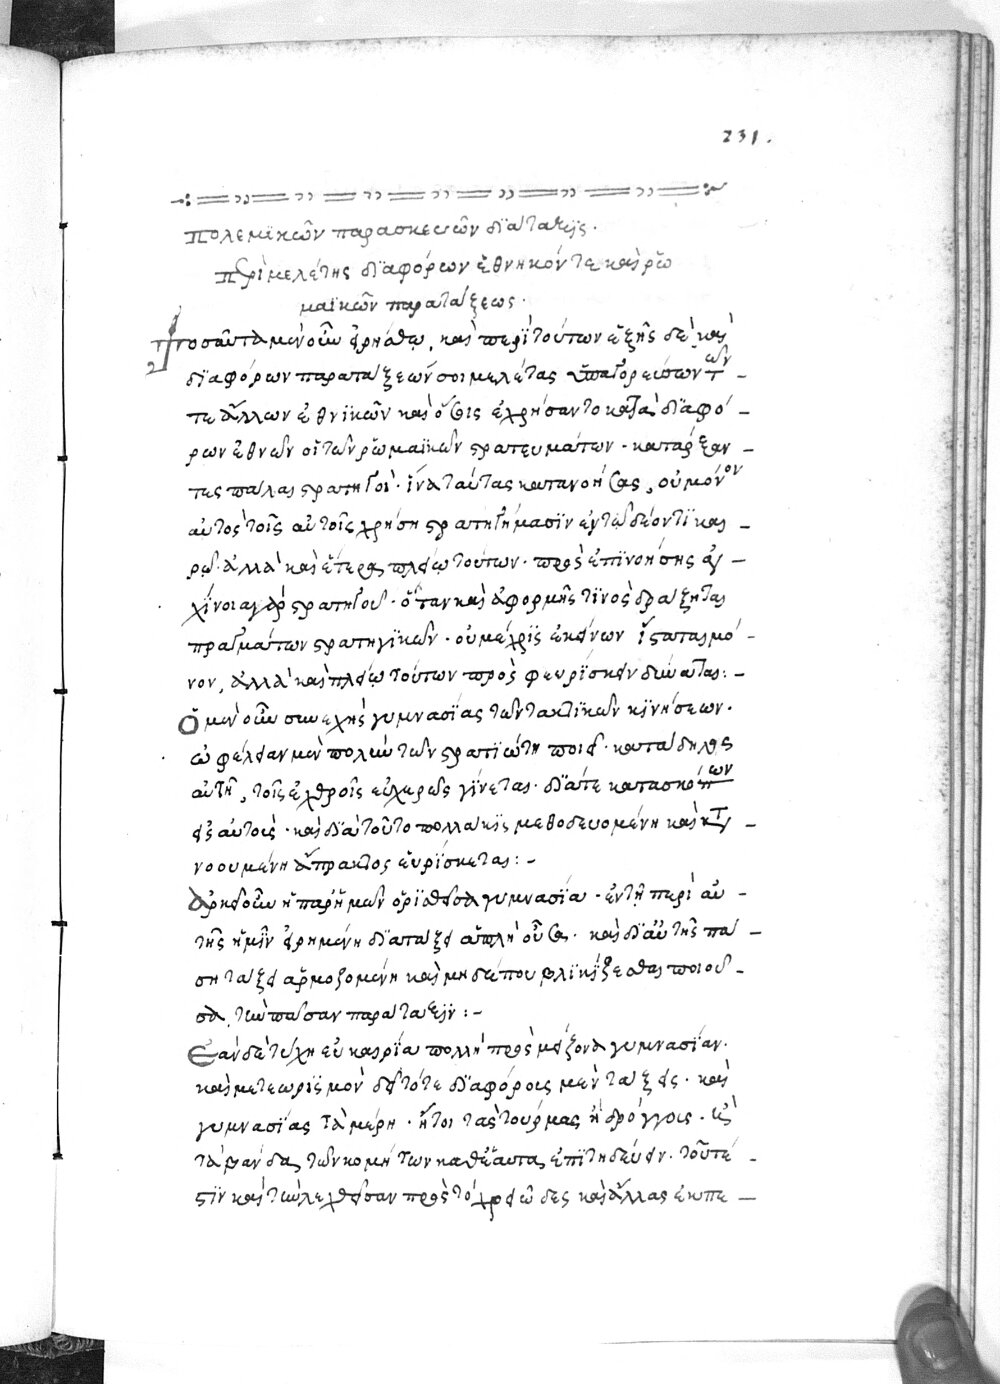 231.
Πολεμϊκῶν παρασκευῶν διάταξϊς.
Περὶ μελέτης διαφόρων ἐθνηκόν τε καὶ ρω
μαϊκῶν παρατάξεως.
Τοσαῦτα μὲν οὖν εἰρήσθω, καὶ περὶ τούτων ἑξῆς δὲ καὶ
διαφόρων παρατάξεών σοι μελέτας ὑπαγορεύσων τῶν
τε ἄλλων ἐθνϊκῶν καὶ ὅσαις ἐχρήσαντο κατὰ διαφό-
ρων ἐθνῶν οἱ τῶν ρωμαϊκῶν στρατευμάτων. κατάρξαν-
τες πάλαι στρατηγοὶ. ἵνα ταύτας κατανοήσας, οὐ μόνον
αὐτὸς τοῖς αὐτοῖς χρήση στρατηγήμασϊν ἐν τῷ δέοντι και-
ρῷ. ἀλλὰ καὶ ἕτερα πλείω τούτων. πρὸς ἐπϊνοήσης ἀγ-
χίνοια γὰρ στρατηγοῦ. ὅταν καὶ ἀφορμῆς τϊνὸς δράξηται
πραγμάτων στρατηγϊκῶν. οὐ μέχρϊς ἐκείνων ἵσταται μό-
νον, ἀλλὰ καὶ πλείω τούτων προσεφευρίσκειν δύναται:-
Ὁ μὲν οὖν συνεχὴς γυμνασίας τῶν τακτϊκῶν κϊνήσεων.
ὠφέλειαν μὲν πολλὺν τῶν στρατϊώτη ποιεῖ. κατάδηλος
αὐτῆ, τοῖς ἐχθροῖς εὐχερῶς γίνεται. διά τε κατασκόπων
εἰς αὐτοὶς. καὶ διὰ τοῦτο πολλάκϊς μεθοδευομένη καὶ κατ-
νοουμένη ἄπρακτος εὑρίσκεται:-
Ἀρκεῖ οὖν ἡ παρ' ἡμῶν ὁρϊσθεῖσα γυμνασία. ἐν τῇ περὶ αὐ-
τῆς ἡμῖν εἰρημένη διατάξει ἁπλὴ οὖσα. καὶ δι' αὐτῆς πά-
ση τάξει ἁρμοζομένη καὶ μηδέπου βλϊκίζεσθαι ποιοῦ-
σα, τὼ πᾶσαν παράταξϊν:-
Ἐὰν δὲ τύχη εὐκαιρία πολλὴ πρὸς μείζονα γυμνασίαν.
καὶ μετεωρϊσμὸν δεῖ τότε διαφόροις μὲν τάξεις. καὶ
γυμνασίας τὰ μέρη. ἤτοι τὰς τούρμας ἢ δρόγγοις. καὶ
τὰ βάνδας τῶν κομήτων καθέαυτας ἐπιτηδεύειν. τοῦτέ-
στϊν καὶ τὼ λεχθεῖσαν πρὸς τὸ χρειῶδες καὶ ἄλλας ἐκ πε-